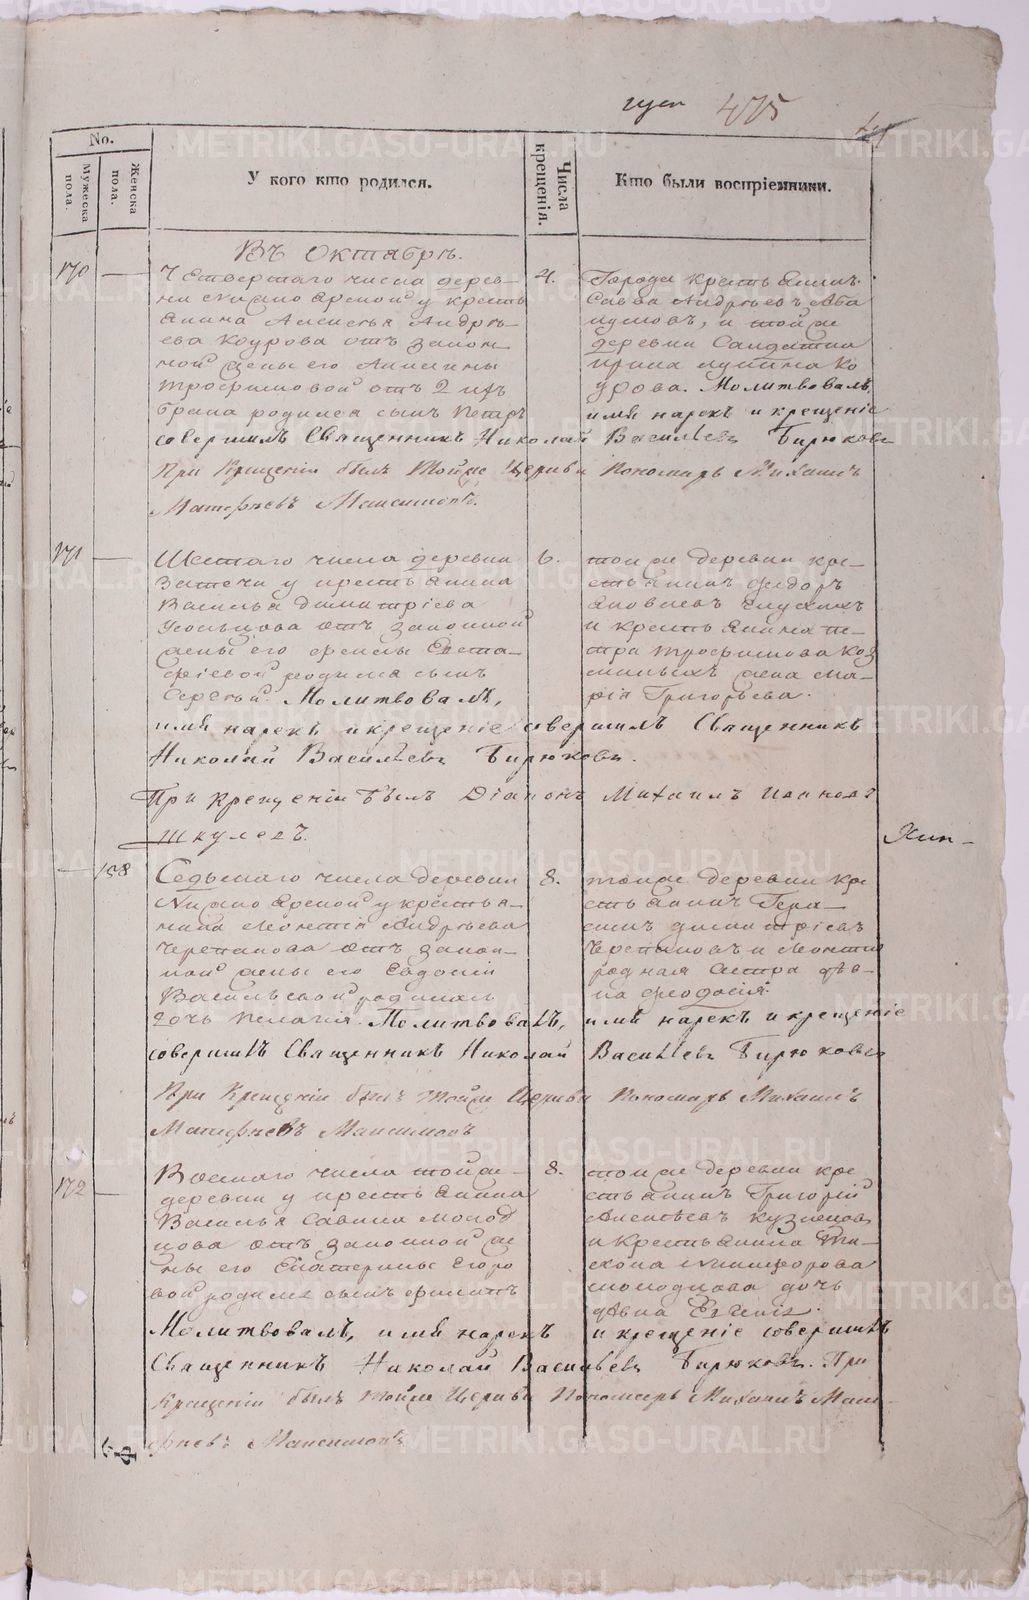 475
No.
Мужеска пола.
Женска пола.
У кого кто родился.
Числа крещенія.
Кто были воспріемники.
Въ Октябрѣ.
170
Четвертаго числа дерев-
ни у кресть
янина Алексѣя Андрѣ-
ева Коурова отъ закон-
ной жены его
Трофимовой отъ 2
брака родился сынъ Петръ
4.
Города крестьянинъ
Савва Андрѣевъ Аба
кумовъ, и той же
деревни
Ирина Ко
урова. Молитвовалъ,
имя нарекъ и крещеніе
совершилъ Священникъ Николай Васильевъ Бирюковъ
При Крещеніи былъ тойже Церкви Пономарь Михаилъ
Матфѣевъ Максимовъ.
171
Шестаго числа деревни
Затечи у крестьянина
Василья Димитріева
отъ законной
жены его
родился сынъ
Сергѣй. Молитвовалъ,
6.
той же деревни кре-
стьянинъ Федоръ
Яковлевъ
и крестьянина Пе-
тра Трофимова Коз
жена Ма-
рія Григорьева.
имя нарекъ и крещеніе совершилъ Священникъ
Николай Васильевъ Бирюковъ.
При крещеніи былъ Діаконъ Михаилъ Ивановъ
Шкулевъ.
158
Седьмаго числа деревни
у крестья-
нина Леонтія Андрѣева
Черепанова отъ закон-
ной жены его Евдокіи
Васильевой родилась
дочь Пелагія. Молитвовалъ,
8.
тойже деревни кре
стьянинъ Гера-
симъ Димитріевъ
Черепановъ и Леонтія
родная сестра дѣв-
ка Феодосія.
имя нарекъ и крещеніе
совершилъ Священникъ Николай Васильевъ Бирюковъ
При Крещеніи былъ тойже Церкви Пономарь Михаилъ
Матфѣевъ Максимовъ
172
Восмаго числа той же
деревни у крестьянина
Василья Савина Молод
цова отъ законной же
ны его Екатерины Егоро
вой родился сынъ Филипъ
8.
той же деревни кре
стьянинъ Григорій
Алексѣевъ Кузнецовъ
и крестьянина Ти-
хона Никифорова
Молодцова дочь
дѣвка
Молитвовалъ, имя нарекъ и крещеніе совершилъ
Священникъ Николай Васильевъ Бирюковъ. При
Крещеніи былъ тойже Церкви Пономарь Михаилъ Мат-
фѣевъ Максимовъ
METRIKI.GASO-URAL.RU